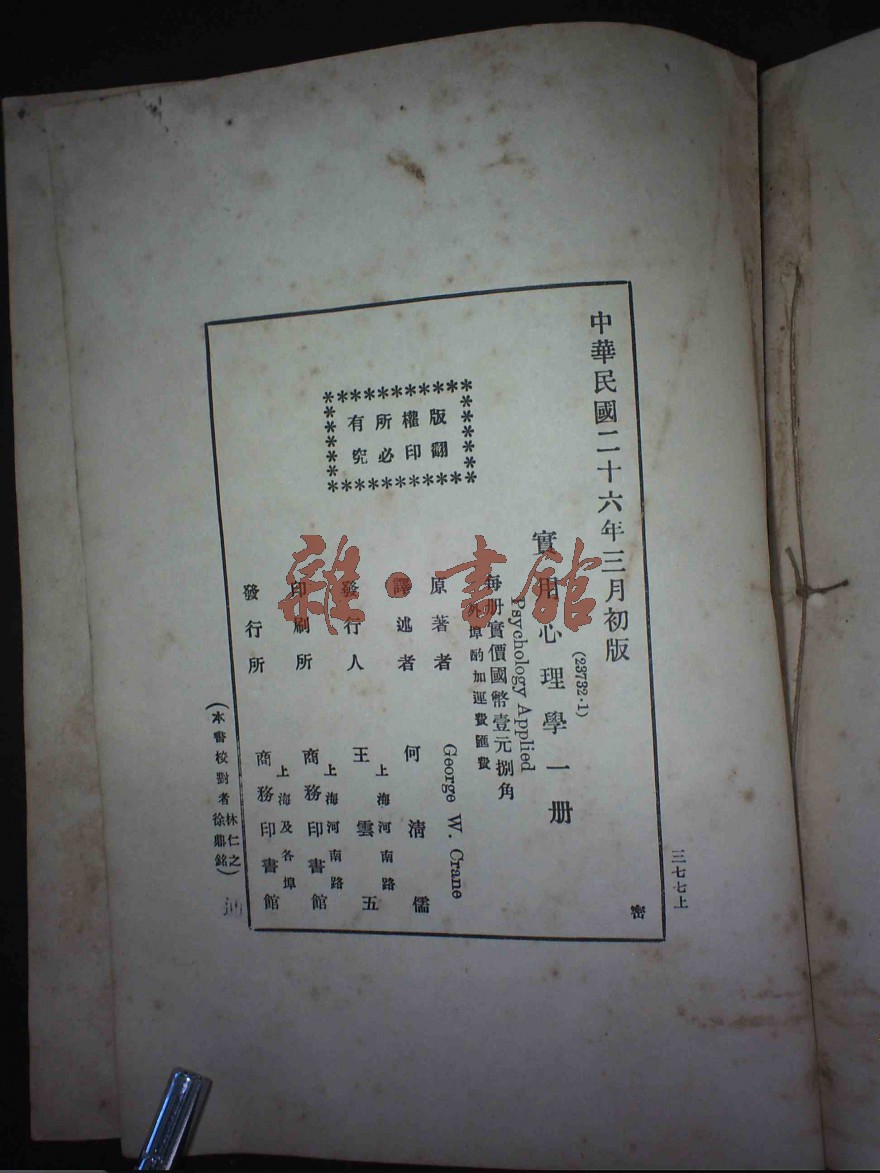 三七七上
中華民國二十六年三月初版
密
(23732·1)
實用心理學一册
Psychology Applied
每册實價國幣壹元捌角
外埠酌加運費匯費
版權所有
翻印必究
原著者 George W. Crane
譯述者 何清儒
發行人 王雲五
上海河南路
印刷所 商務印書館
上海河南路
發行所 商務印書館
上海及各埠
(本書校對者 林仁之 徐鼎銘)
雜·書館